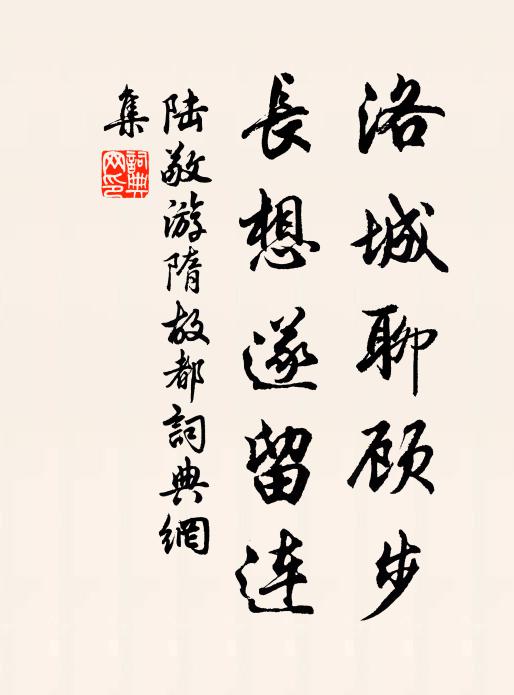 洛城聊顾步
長想遂留连
陆敬游隋故都詞典網
集
詞典
网印